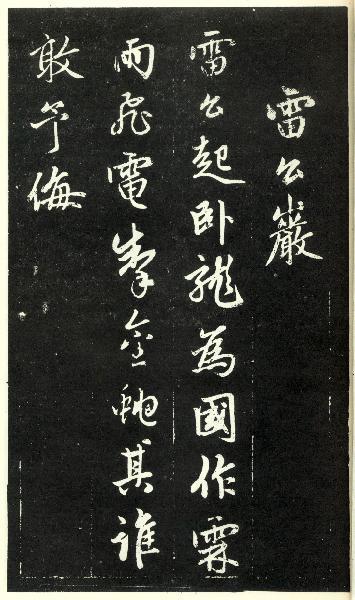 雷公巖
雷公起卧龍為國作霖
雨飛電掣金虵其誰
敢予侮